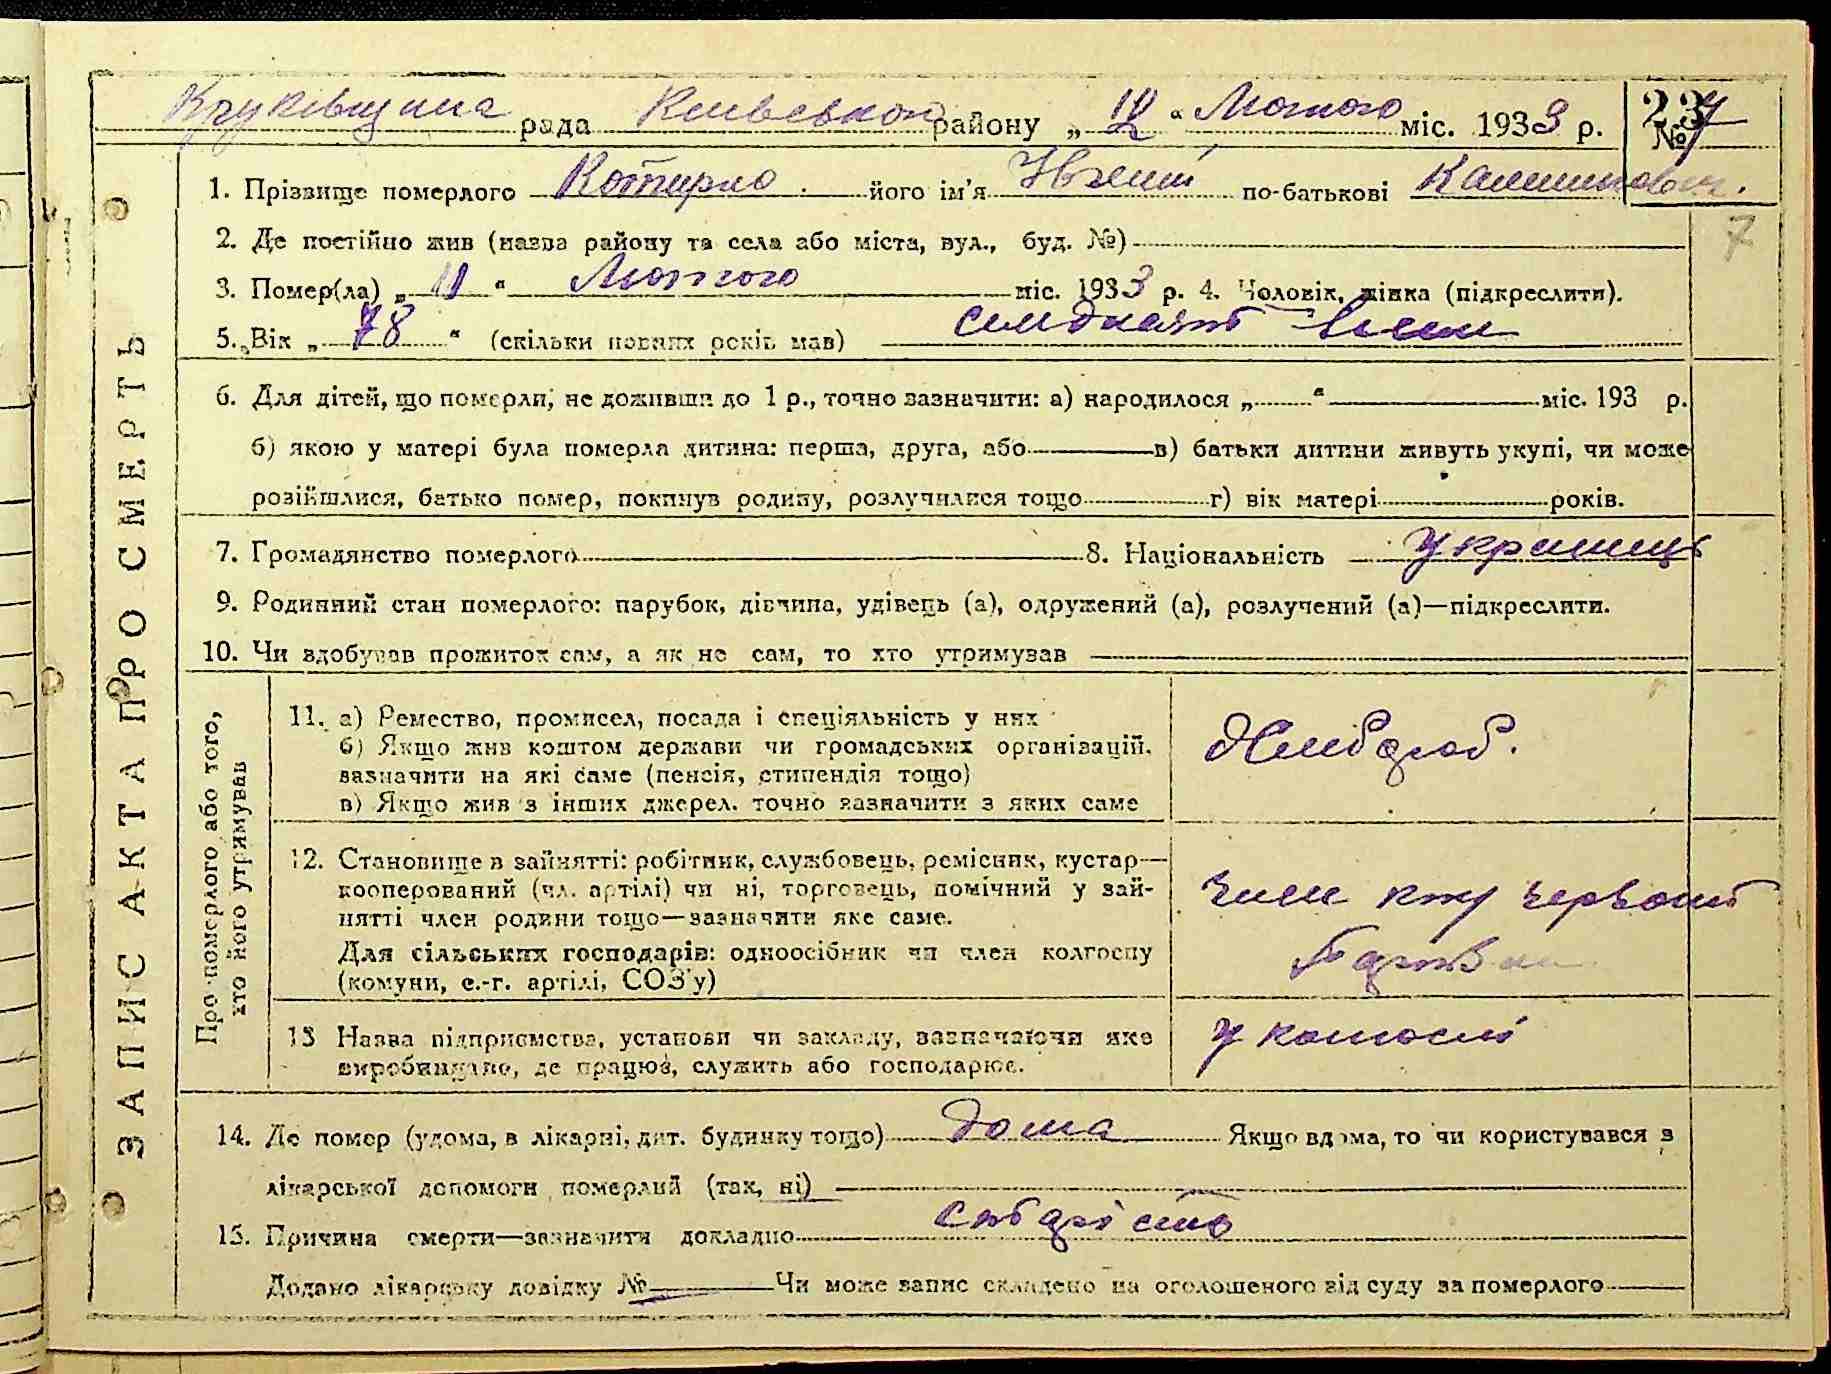 Круківщина рада Київського району „ 12 " Лютого міс. 1933 р. 23 № 7
1. Прізвище померлого Котирло його ім'я по-батькові
7
2. Де постійно жив (назва району та села або міста, вул., буд. №)
3. Помер(ла) „ 11 " Лютого міс. 1933 р. 4. Чоловік, жінка (підкреслити).
5. Вік „ 78 " (скільки повних років мав) сімдесят вісім
6. Для дітей, що померли, не доживши до 1 р., точно зазначити: а) народилося „ " міс. 193 р.
б) якою у матері була померла дитина: перша, друга, або в) батьки дитини живуть укупі, чи може
розійшлися, батько помер, покинув родину, розлучилися тощо г) вік матері років.
7. Громадянство померлого 8. Національність Українець
9. Родинний стан померлого: парубок, дівчина, удівець (а), одружений (а), розлучений (а)—підкреслити.
10. Чи здобував прожиток сам, а як не сам, то хто утримував
ЗАПИС АКТА ПРО СМЕРТЬ
Про померлого або того, хто його утримував
11. а) Ремество, промисел, посада і спеціяльність у них
б) Якщо жив коштом держави чи громадських організацій,
зазначити на які саме (пенсія, стипендія тощо)
в) Якщо жив з інших джерел, точно зазначити з яких саме
Хлібороб.
12. Становище в зайнятті: робітник, службовець, ремісник, кустар—
кооперований (чл. артілі) чи ні, торговець, помічний у зай-
нятті член родини тощо—зазначити яке саме.
Для сільських господарів: одноосібник чи член колгоспу
(комуни, с.-г. артілі, СОЗ'у)
член червоний
13 Назва підприємства, установи чи закладу, зазначаючи яке
виробництво, де працює, служить або господарює.
У колгоспі
14. Де помер (удома, в лікарні, дит. будинку тощо) дома Якщо вдома, то чи користувався з
лікарської допомоги померлий (так, ні)
15. Причина смерти—зазначити докладно старість
Додано лікарську довідку № Чи може запис складено на оголошеного від суду за померлого